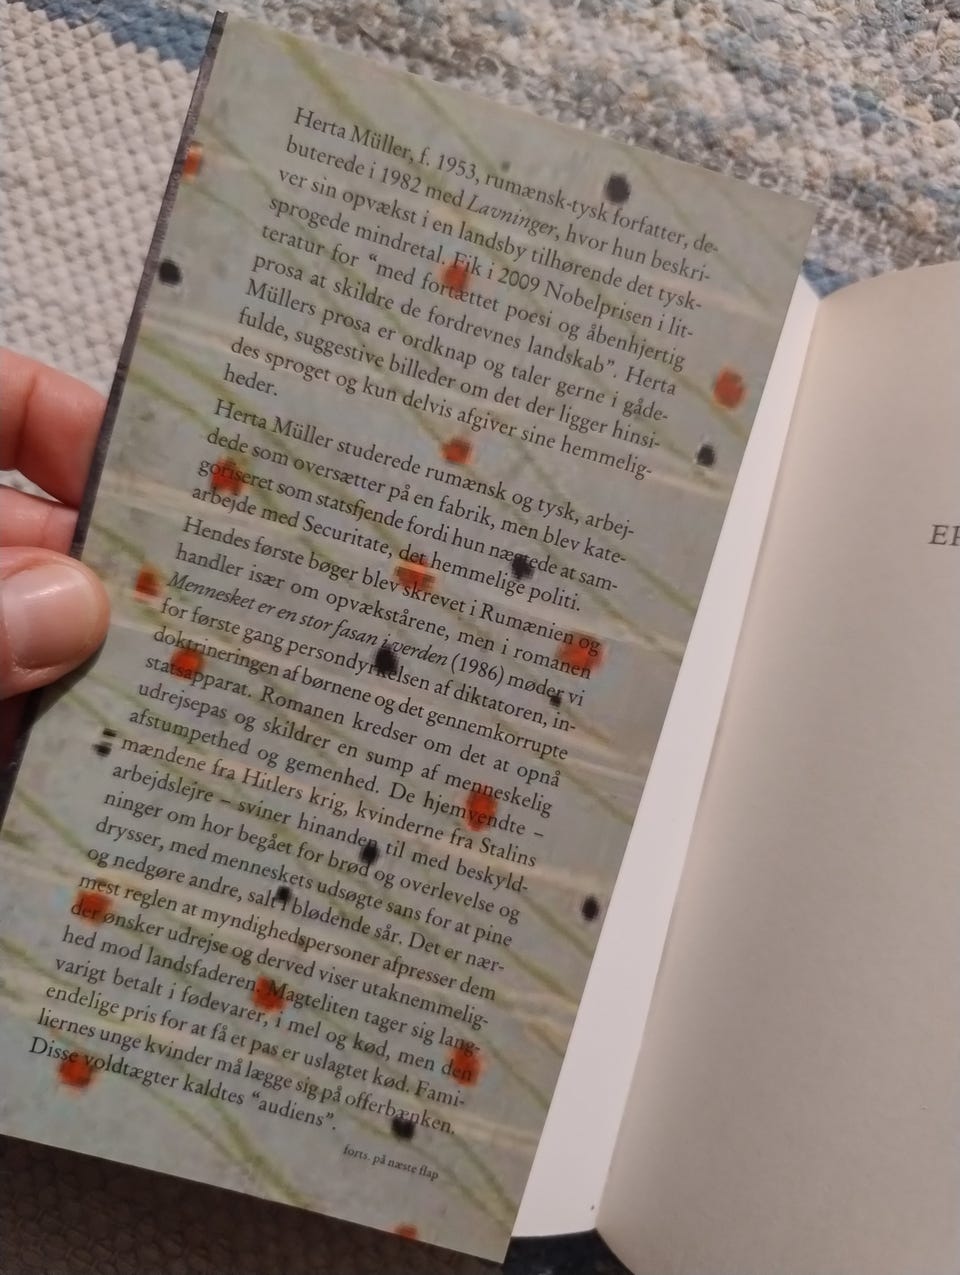 Herta Müller, f. 1953, rumænsk-tysk forfatter, de-
buterede i 1982 med Lavninger, hvor hun beskri-
ver sin opvækst i en landsby tilhørende det tysk-
sprogede mindretal. Fik i 2009 Nobelprisen i lit-
teratur for “med fortættet poesi og åbenhjertig
prosa at skildre de fordrevnes landskab”. Herta
Müllers prosa er ordknap og taler gerne i gåde-
fulde, suggestive billeder om det der ligger hinsi-
des sproget og kun delvis afgiver sine hemmelig-
heder.
Herta Müller studerede rumænsk og tysk, arbej-
dede som oversætter på en fabrik, men blev kate-
goriseret som statsfjende fordi hun nægtede at sam-
arbejde med Securitate, det hemmelige politi.
Hendes første bøger blev skrevet i Rumænien og
handler især om opvækstårene, men i romanen
Mennesket er en stor fasan i verden (1986) møder vi
for første gang persondyrkelsen af diktatoren, in-
doktrineringen af børnene og det gennemkorrupte
statsapparat. Romanen kredser om det at opnå
udrejsepas og skildrer en sump af menneskelig
afstumpethed og gemenhed. De hjemvendte –
mændene fra Hitlers krig, kvinderne fra Stalins
arbejdslejre – sviner hinanden til med beskyld-
ninger om hor begået for brød og overlevelse og
drysser, med menneskets udsøgte sans for at pine
og nedgøre andre, salt i blødende sår. Det er nær-
mest reglen at myndighedspersoner afpresser dem
der ønsker udrejse og derved viser utaknemmelig-
hed mod landsfaderen. Magteliten tager sig lang-
varigt betalt i fødevarer, i mel og kød, men den
endelige pris for at få et pas er uslagtet kød. Fami-
liernes unge kvinder må lægge sig på offerbænken.
Disse voldtægter kaldtes “audiens”.
forts. på næste flap